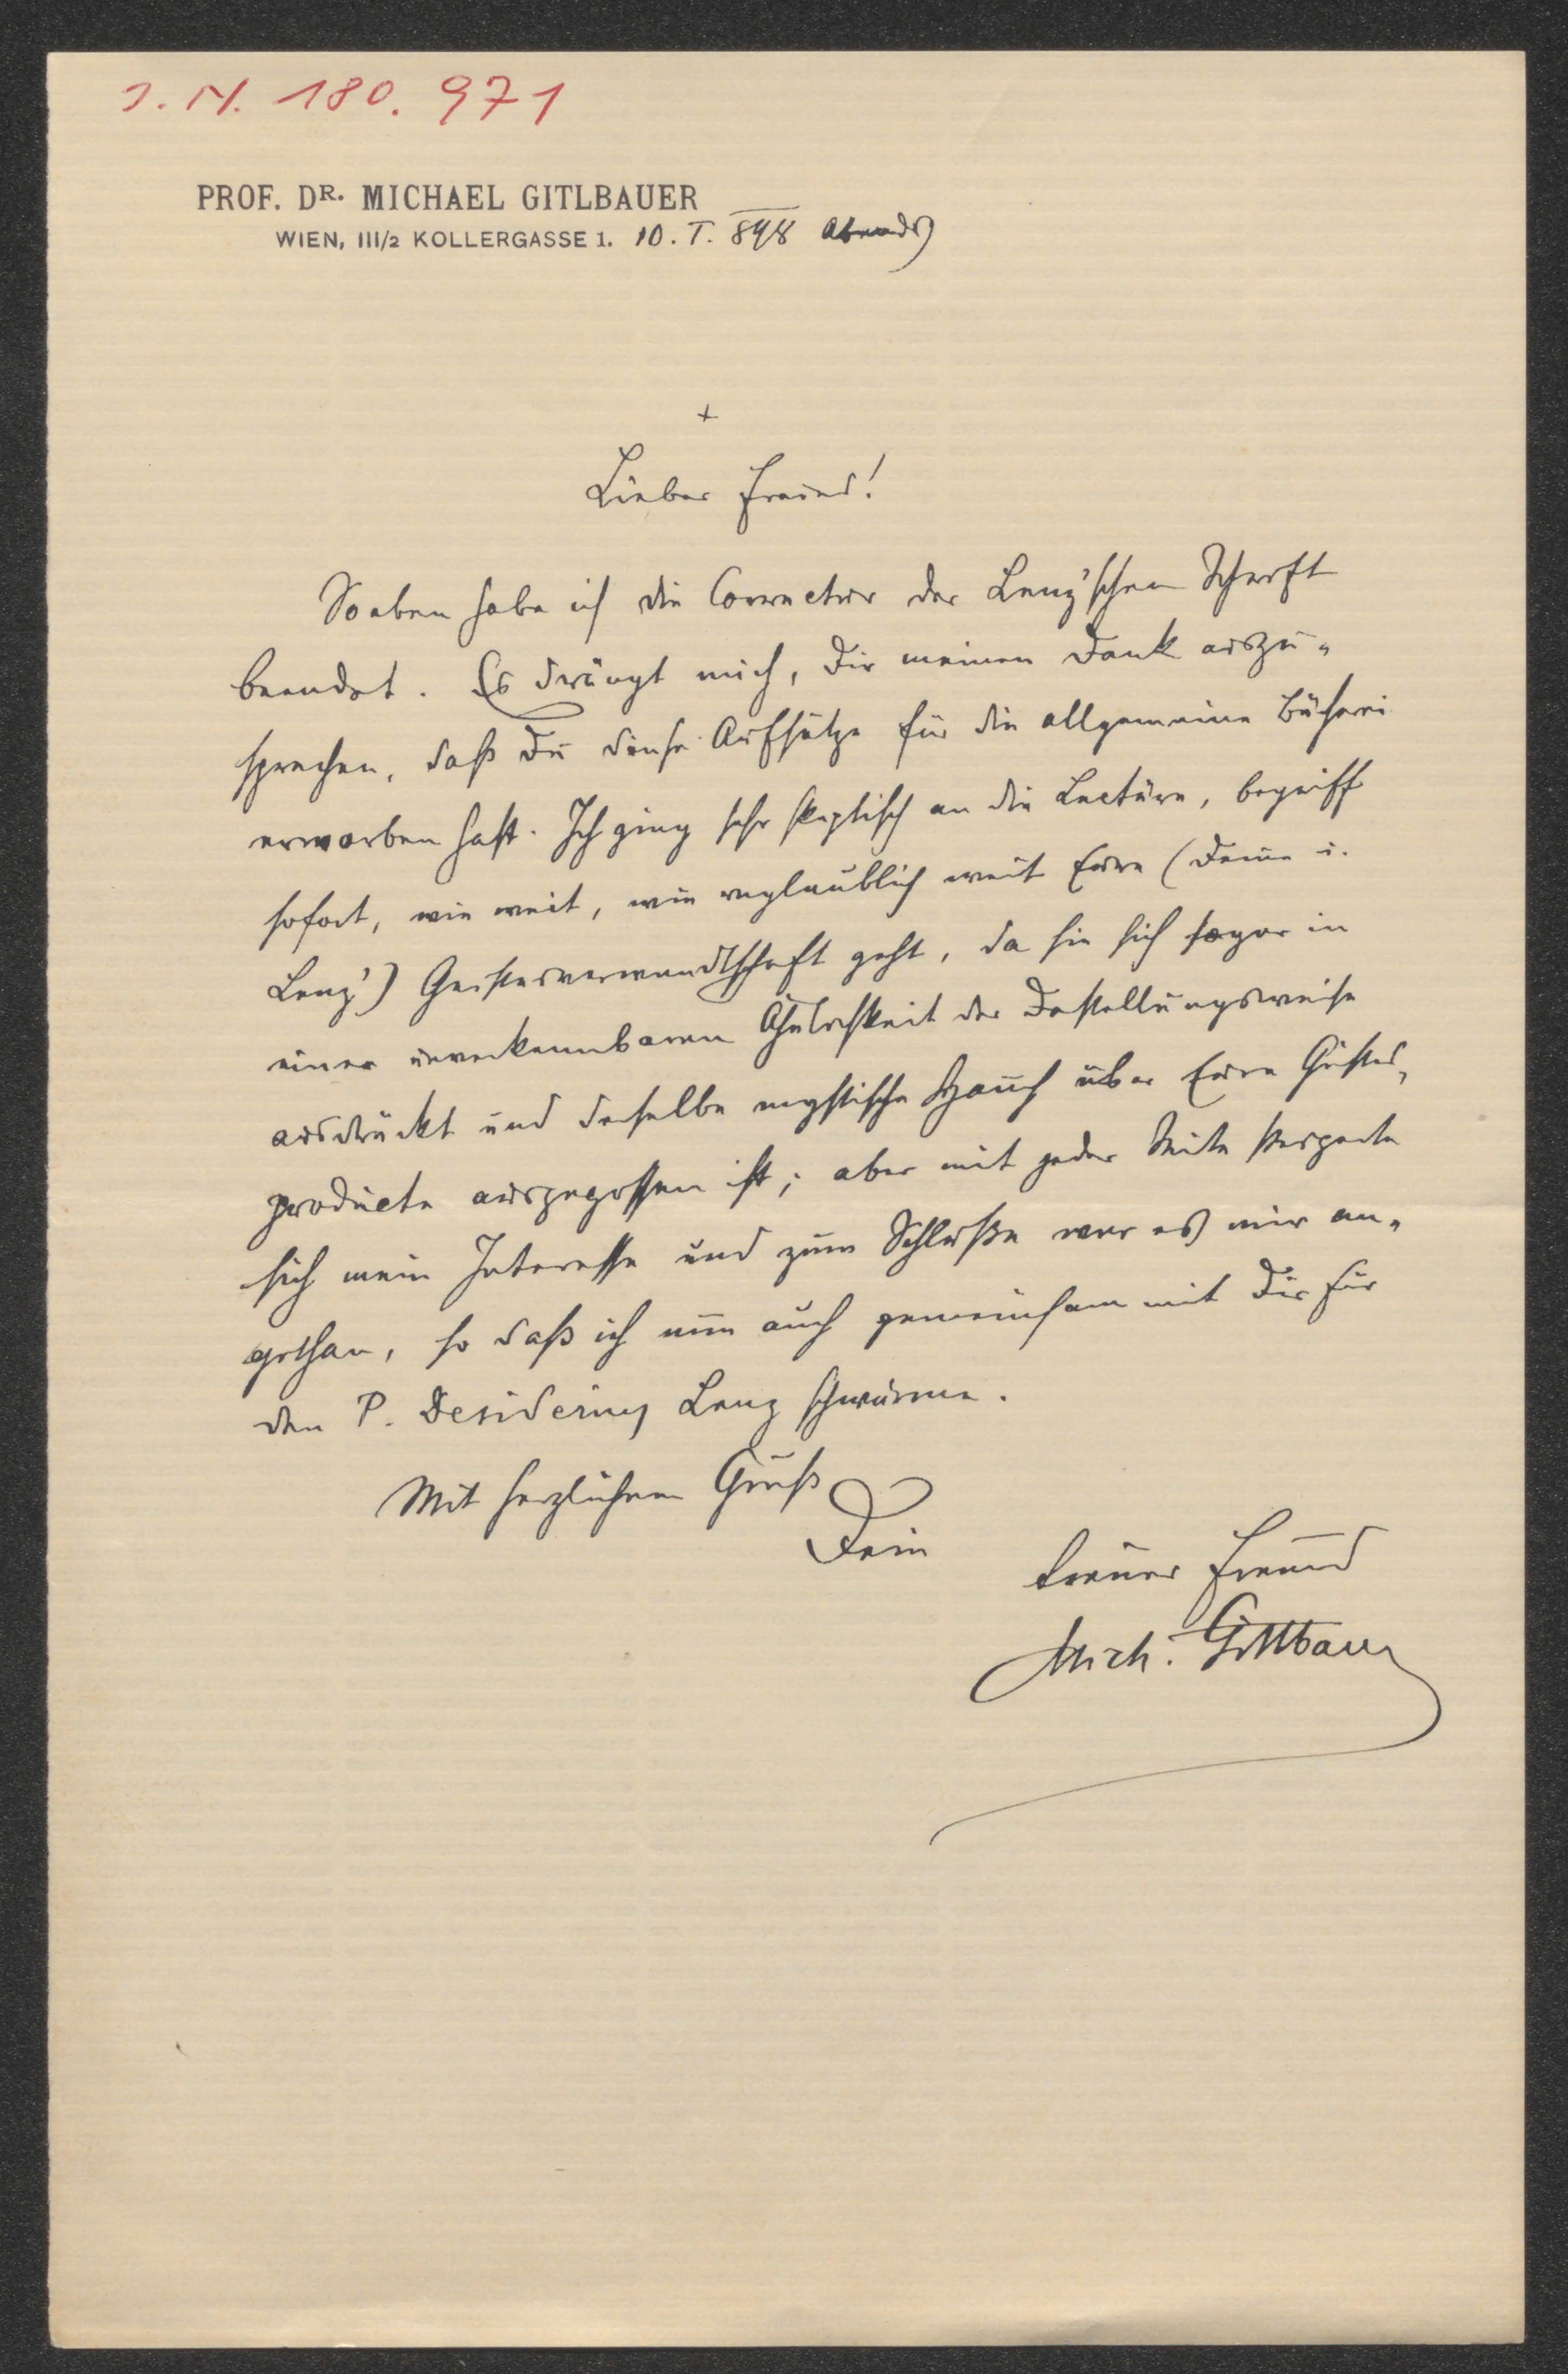 J. N. 180.971
PROF. DR. MICHAEL GITLBAUER
WIEN, III/2 KOLLERGASSE 1. 10. I. 898 Abends
+
Lieber Freund!
Soeben habe ich die Correctur der Lenz'schen Schrift
beendet. Es drängt mich, Dir meinen Dank auszu-
sprechen, daß Du diese Aufsätze für die allgemeine Bücherei
erworben hast. Ich ging sehr skeptisch an die Lectüre, begriff
sofort, wie weit, wie unglaublich weit Eure (Deine u.
Lenz') Geistesverwandtschaft geht, da sie sich sogar in
einer unverkennbaren Ähnlichkeit der Darstellungsweise
ausdrückt und derselbe mystische Hauch über Eure Geistes-
producte ausgegossen ist; aber mit jeder Seite steigerte
sich mein Interesse und zum Schluße war es mir an-
gethan, so daß ich nun auch gemeinsam mit Dir für
den P. Desiderius Lenz schwärme.
Mit herzlichem Gruß
Dein
treuer Freund
Mich. Gitlbauer